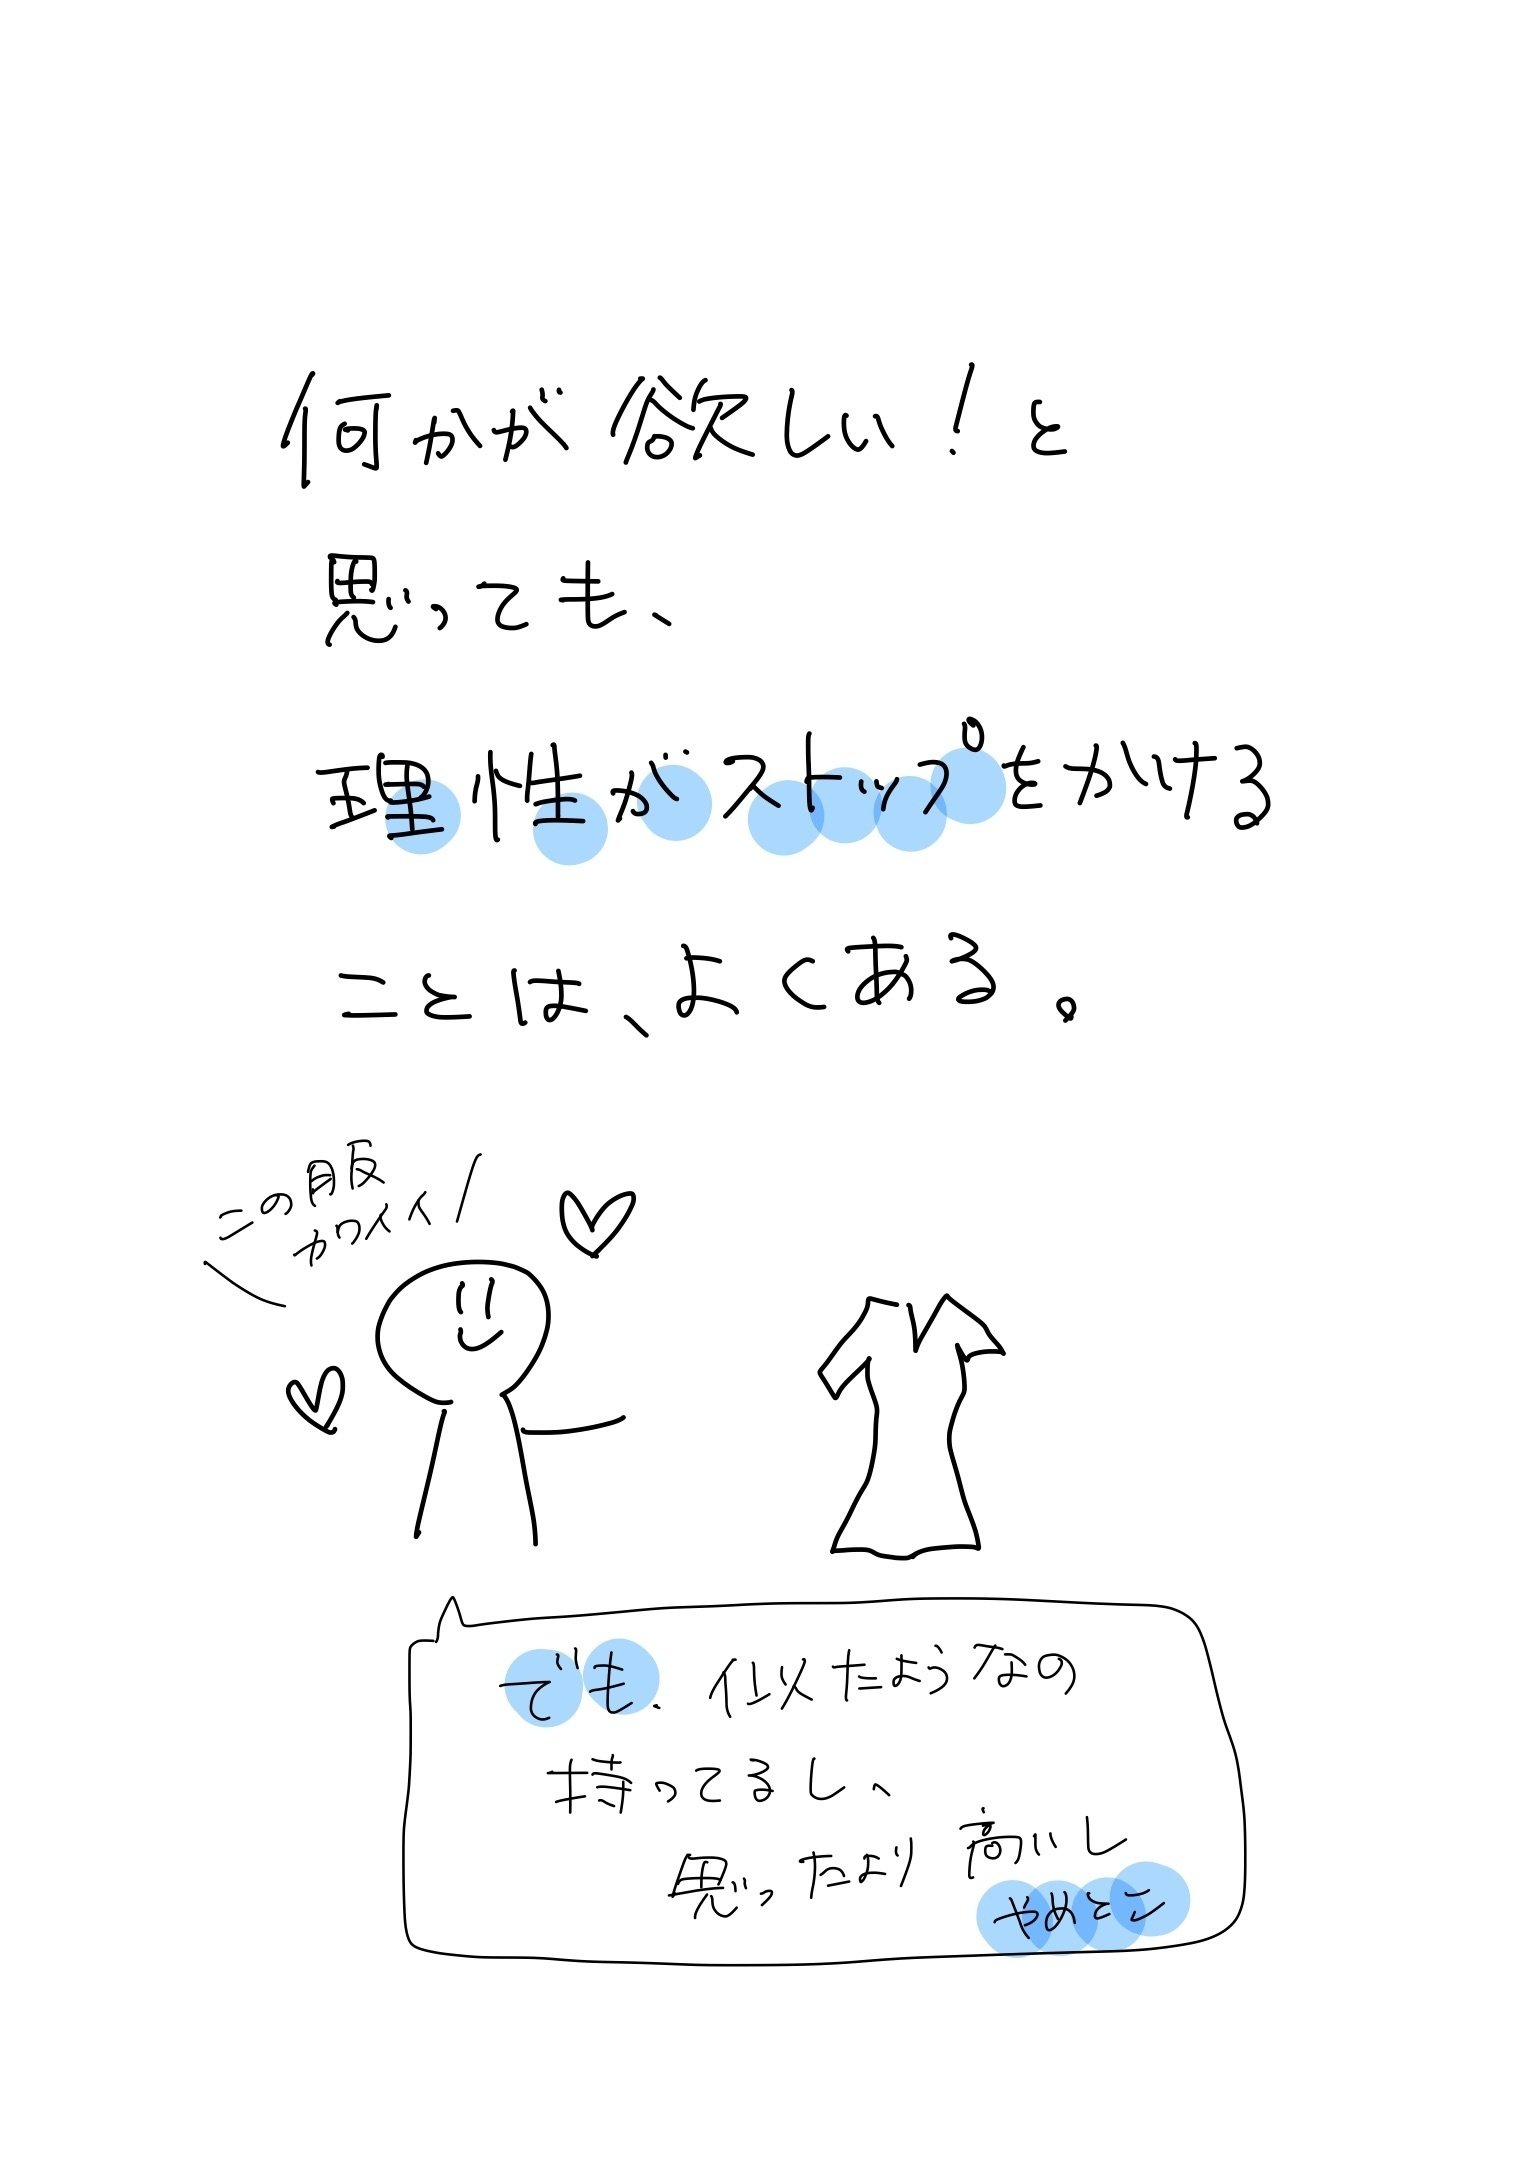 何かが欲しい!と
思っても、
理性がストップをかける
ことは、よくある。
この服
カワイイ
でも、似たようなの
持ってるし、
思ったより高いし
やめとこ